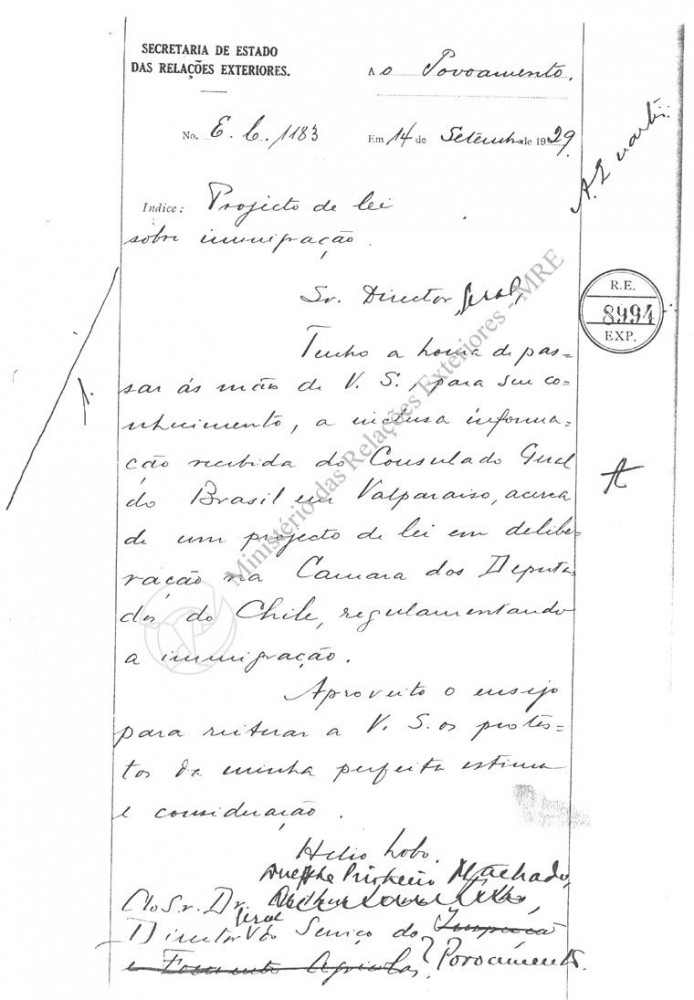 SECRETARIA DE ESTADO
DAS RELAÇÕES EXTERIORES.
Ao Povoamento.
No. E. C. 1183
Em 14 de Setembro de 1929.
Indice: Projecto de lei
sobre immigração.
Sr. Director Geral,
Tenho a honra de pas-
sar ás mãos de V. S., para seu co-
nhecimento, a inclusa informa-
ção recebida do Consulado Geral
do Brasil em Valparaiso, acerca
de um projecto de lei em delibe-
ração na Camara dos Deputa-
dos do Chile, regulamentando
a immigração.
Aproveito o ensejo
para reiterar a V. S. os protes-
tos da minha perfeita estima
e consideração.
Helio Lobo.
Machado,
Ao Sr. Dr.
Director Geral do Serviço do Inspecção
e Fomento Agricolas, Povoamento.
R.E.
8994
EXP.
A
Ministério das Relações Exteriores - MRE